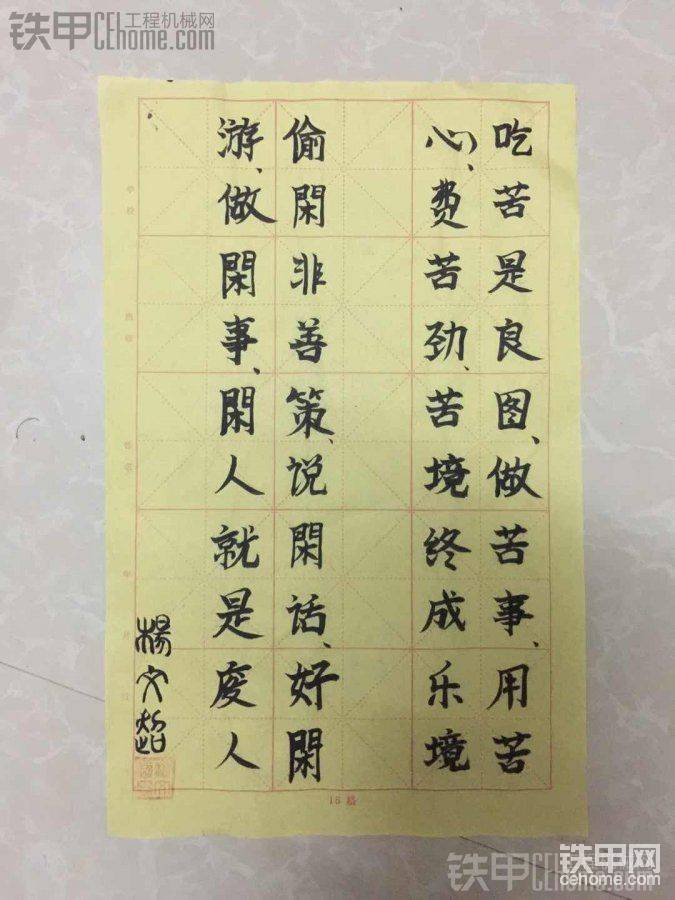 铁甲工程机械网
CEhome.com
吃苦是良图、做苦事、用苦
心、费苦劲、苦境终成乐境
偷閑非善策、说閑话、好閑
游、做閑事、閑人就是废人
楊文超
铁甲网
cehome.com